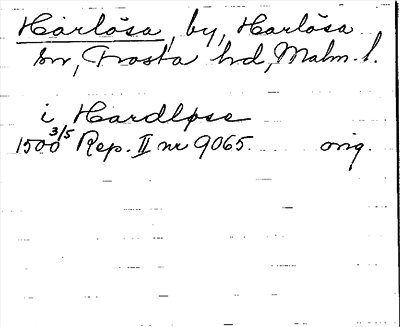 Harlösa, by, Harlösa
sn, Frosta hd, Malm. l.
i Hardløse
1500 3/5 Rep. II nr 9065. orig.